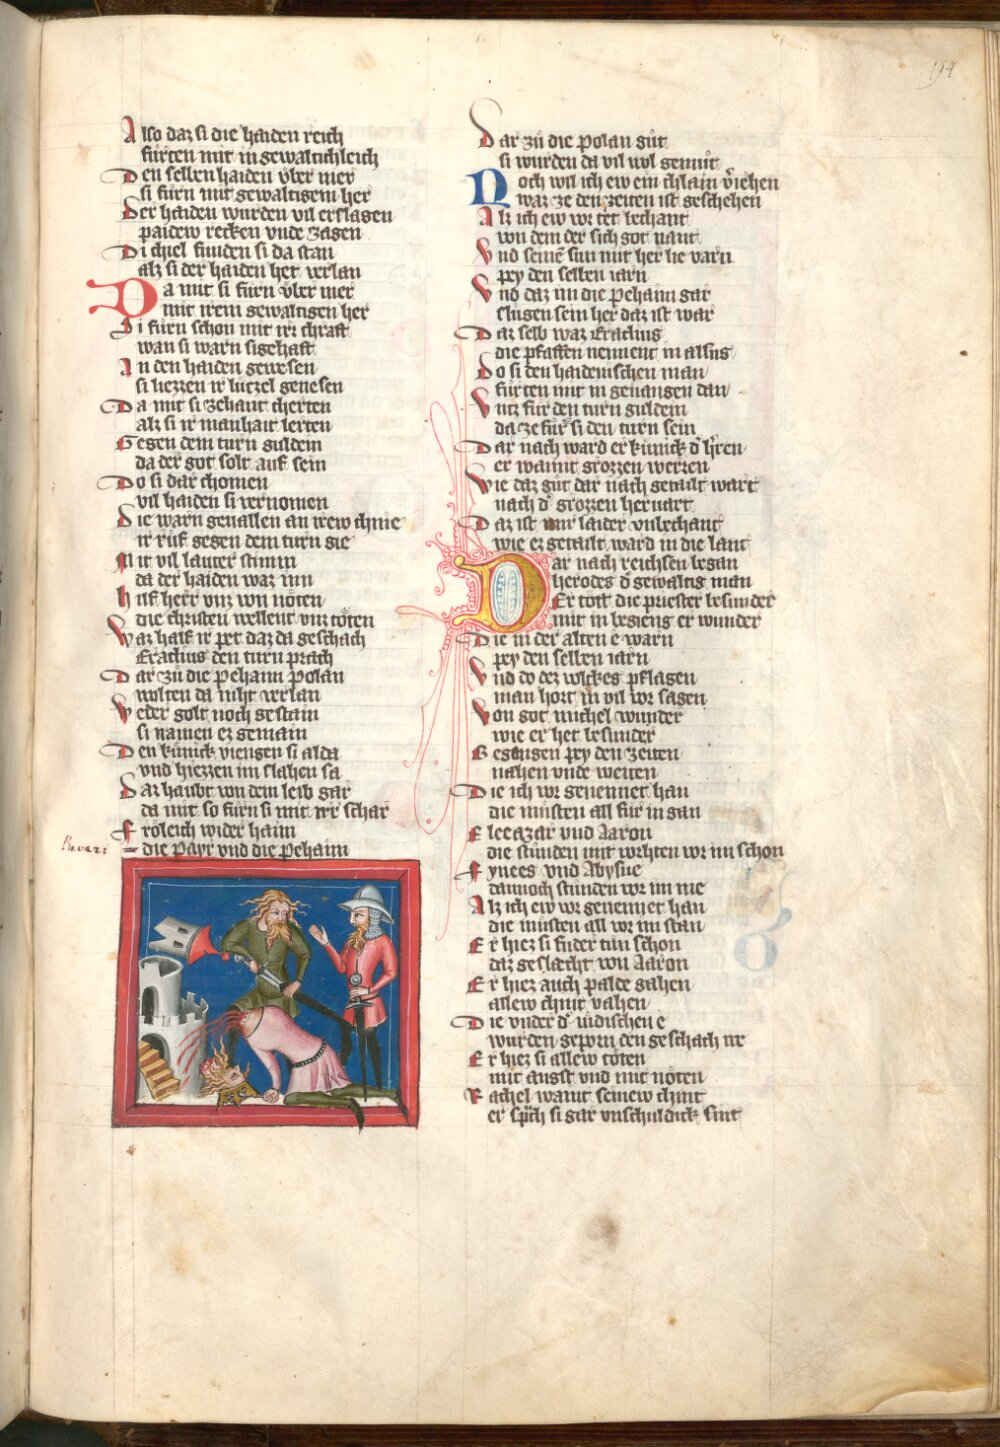 194
Also daz si die haiden reich
fürten mit in gewaltichleich
Den selben haiden vber mer
si fürn mit gewaltigem her
Der haiden wurden vil erslagen
paidew recken vnde zagen
Di chiel funden si da stan
alz si der haiden het verlan
Da mit si fürn vber mer
mit irem gewaltigen her
Si fürn schon mit irr chraft
wan si warn sigehaft
An den haiden gewesen
si liezzen ir lüczel genesen
Da mit si zehant cherten
alz si ir manhait lerten
Gegen dem turn guldein
da der got solt auf sein
Do si dar chomen
vil haiden si vernomen
Die warn geuallen an irew chnie
ir rüf gegen dem turn gie
Mit vil lauter stimm
da der haiden waz inn
hilf herr vnz von nöten
die christen wellent vnz töten
Waz half ir pet daz da geschach
Eraclius den turn prach
Dar zü die Pehaim Polan
wolten da niht verlan
Weder golt noch gestain
si namen ez gemain
Den künick viengen si alda
vnd hiezzen im slahen sa
Daz haubt von dem leib gar
da mit so fürn si mit irr schar
Fröleich wider haim
Bavari
die Payr vnd die Pehaim
Dar zü die Polan güt
si wurden da vil wol gemüt
Noch wil ich ew ein chlain v̄iehen
waz ze den zeiten ist geschehen
Alz ich ew vor tet bechant
von dem der sich got nant
Vnd seinē sun mit her lie varn
pey den selben iarn
Vnd daz im die Pehaim gar
slügen sein her daz ist war
Daz selb waz Eraclius
die pfaffen nennent in alsus
Do si den haidenischen man
fürten mit in geuangen dan
Vncz für den turn guldein
da ze für si den turn sein
Dar nach ward er künick d' h'ren
er wannt grozzen werren
Wie daz güt dar nach getailt wart
nach d' grozzen heruart
Daz ist mir laider vnbechant
wie ez getailt ward in die lant
Dar nach reichsen began
herodes d' gewaltig man
Er tött die priester besunder
mit in begieng er wunder
Die in der alten e warn
pey den selben iarn
Vnd do dez volckes pflagen
man hort in vil vor sagen
Von got michel wunder
wie er het besunder
Begangen pey den zeiten
nahen vnde weiten
Die ich vor genennet han
die müsten all für in gan
Eleeazar vnd Aaron
die stunden mit worhten vor im schon
Fynees vnd Abysue
dannoch stunden vor im me
Alz ich ew vor genennet han
die müsten all vor im stan
Er hiez si fuder tun schon
daz geslæcht von Aaron
Er hiez auch palde gahen
allew chint vahen
Die vnder d' iüdischen e
wurden geporn den geschach we
Er hiez si allew töten
mit angst vnd mit nöten
Rachel wannt seinew chint
er sp̄ch si gar vnschuldick sint